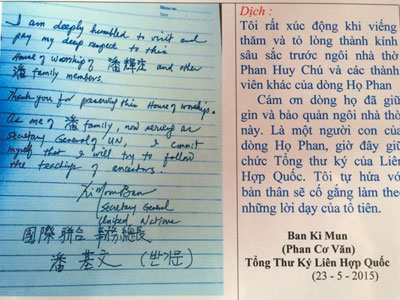 I am deeply humbled to visit and
pay my deep respect to this
House of worship of 潘輝注 and other
潘 family members.
Thank you for preserving this House of worship.
As one of 潘 family, now serving as
Secretary General of UN, I commit
myself that I will try to follow
the teachings of ancestors.
Ki Moon Ban
Secretary General
United Nations
國際聯合 事務總長
潘 基 文 (반기문)
Dịch :
Tôi rất xúc động khi viếng
thăm và tỏ lòng thành kính
sâu sắc trước ngôi nhà thờ
Phan Huy Chú và các thành
viên khác của dòng Họ Phan
Cám ơn dòng họ đã giữ
gìn và bảo quản ngôi nhà thờ
này. Là một người con của
dòng Họ Phan, giờ đây giữ
chức Tổng thư ký của Liên
Hợp Quốc. Tôi tự hứa với
bản thân sẽ cố gắng làm theo
những lời dạy của tổ tiên.
Ban Ki Mun
(Phan Cơ Văn)
Tổng Thư Ký Liên Hợp Quốc
(23 - 5 - 2015)